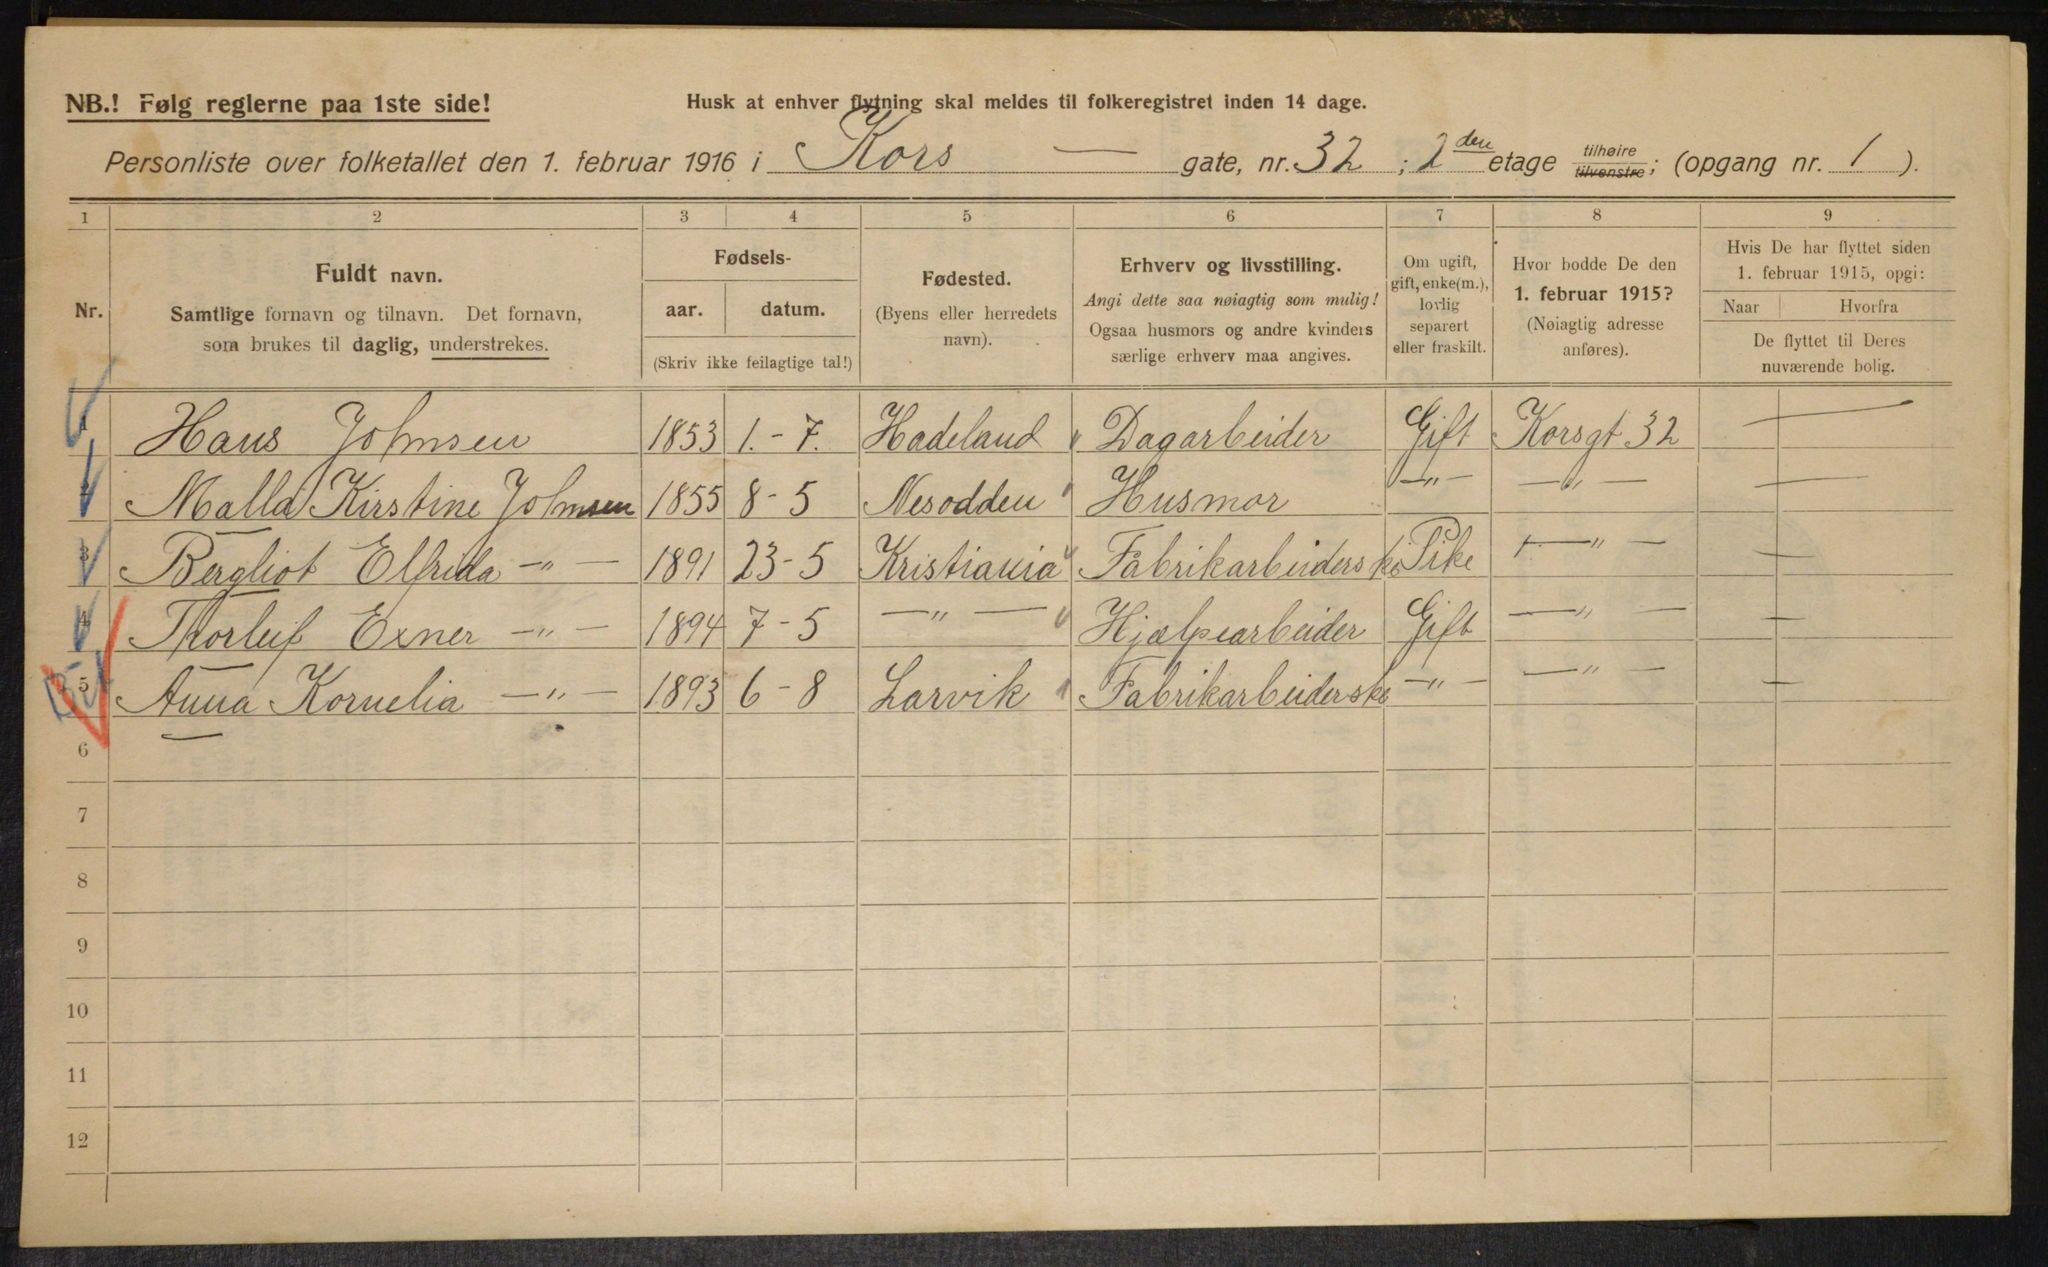 NB.! Følg reglerne paa 1ste side!
Husk at enhver flytning skal meldes til folkeregistret inden 14 dage.
Personliste over folketallet den 1. februar 1916 i Kors — gate, nr. 32 ; 2den etage tilhøire tilvenstre ; (opgang nr. 1 ).
1 2 3 4 5 6 7 8 9
Nr.
Fuldt navn.
Samtlige fornavn og tilnavn. Det fornavn,
som brukes til daglig, understrekes.
Fødsels-
aar. datum.
(Skriv ikke feilagtige tal!)
Fødested.
(Byens eller herredets
navn).
Erhverv og livsstilling.
Angi dette saa nøiagtig som mulig!
Ogsaa husmors og andre kvinders
særlige erhverv maa angives.
Om ugift,
gift, enke(m.),
lovlig
separert
eller fraskilt.
Hvor bodde De den
1. februar 1915?
(Nøiagtig adresse
anføres).
Hvis De har flyttet siden
1. februar 1915, opgi:
Naar Hvorfra
De flyttet til Deres
nuværende bolig.
1 Hans Johnsen 1853 1.-7. Hadeland Dagarbeider Gift Korsgt 32 —
2 Malla Kirstine Johnsen 1855 8-5 Nesodden Husmor —"— —"— —
3 Bergliot Elfrida —"— 1891 23-5 Kristiania Fabrikarbeiderske Pike —"— —
4 Thorleif Exner —"— 1894 7-5 —"— Hjælpearbeider Gift —"— —
5 Anna Kornelia —"— 1893 6-8 Larvik Fabrikarbeiderske —"— —"— —
6
7
8
9
10
11
12